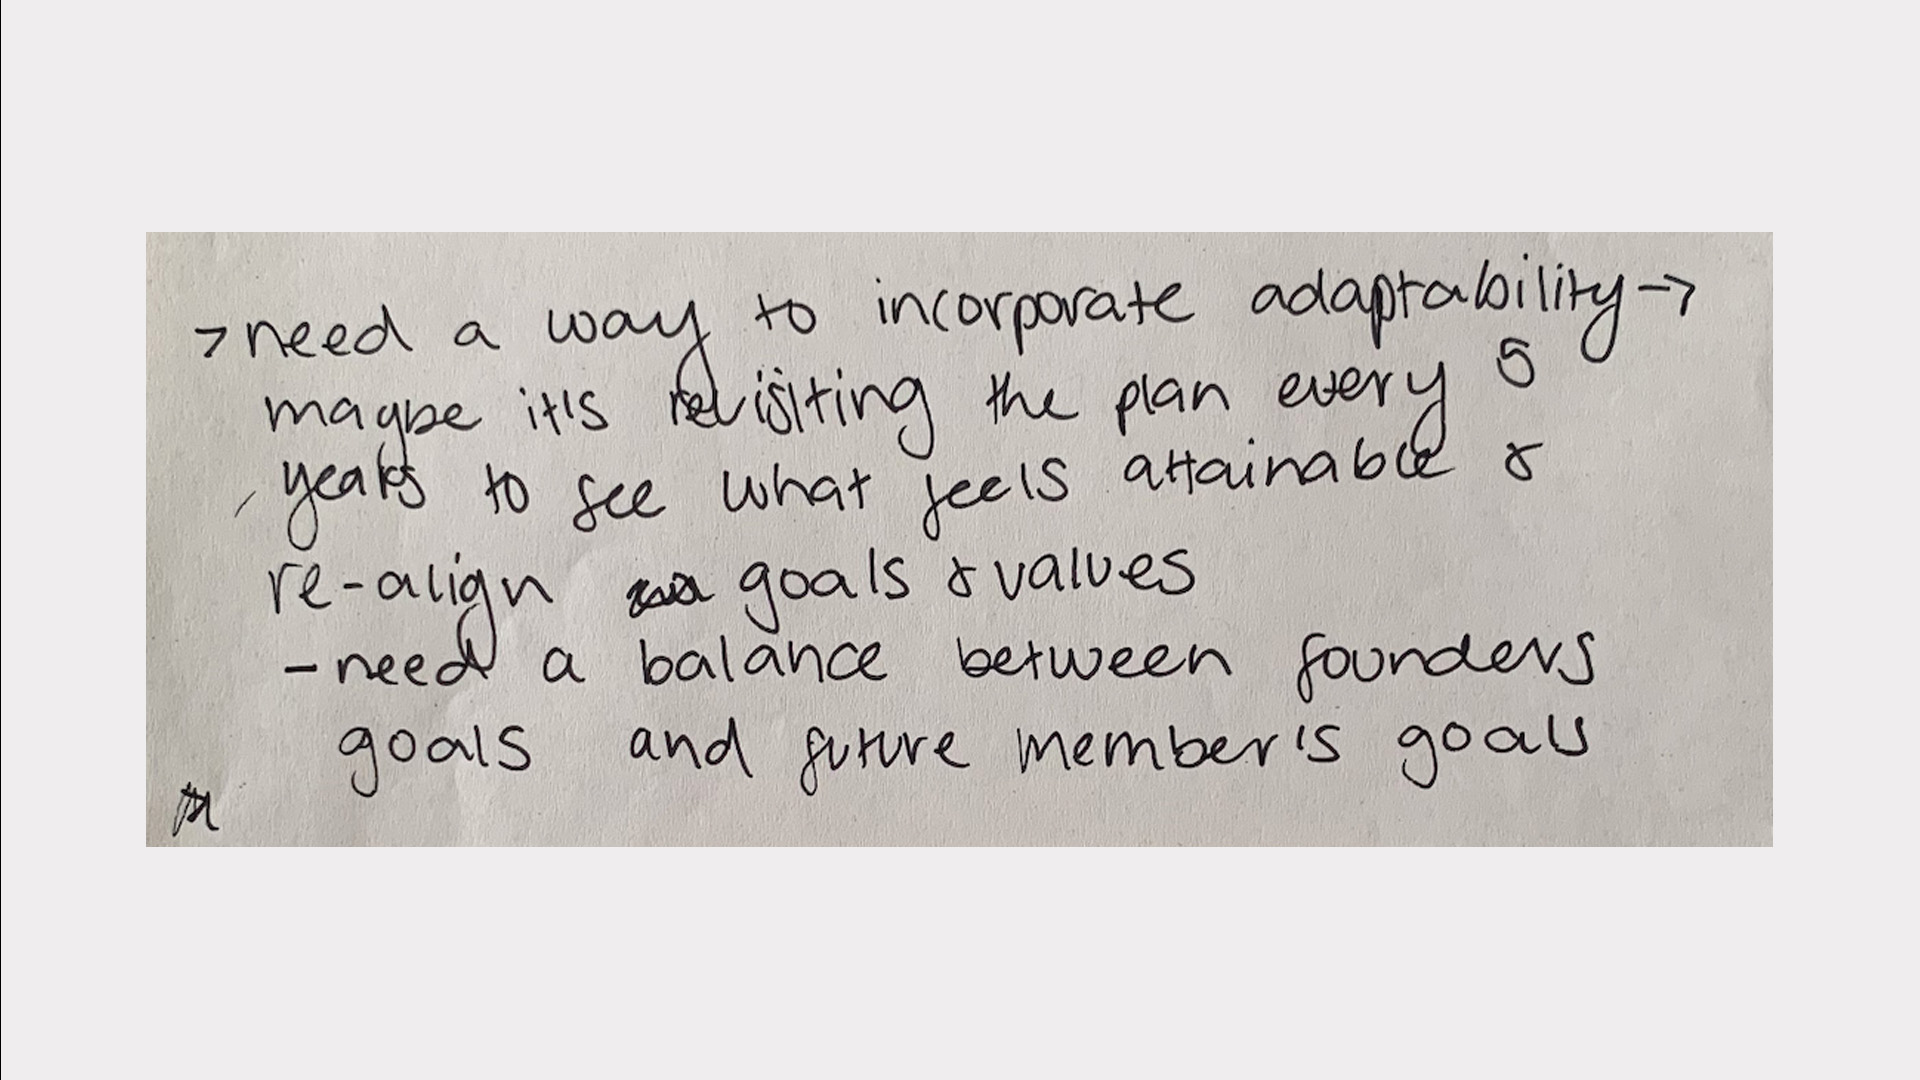 → need a way to incorporate adaptability →
maybe it's revisiting the plan every 5
years to see what feels attainable &
re-align goals & values
- need a balance between founders
goals and future member's goals